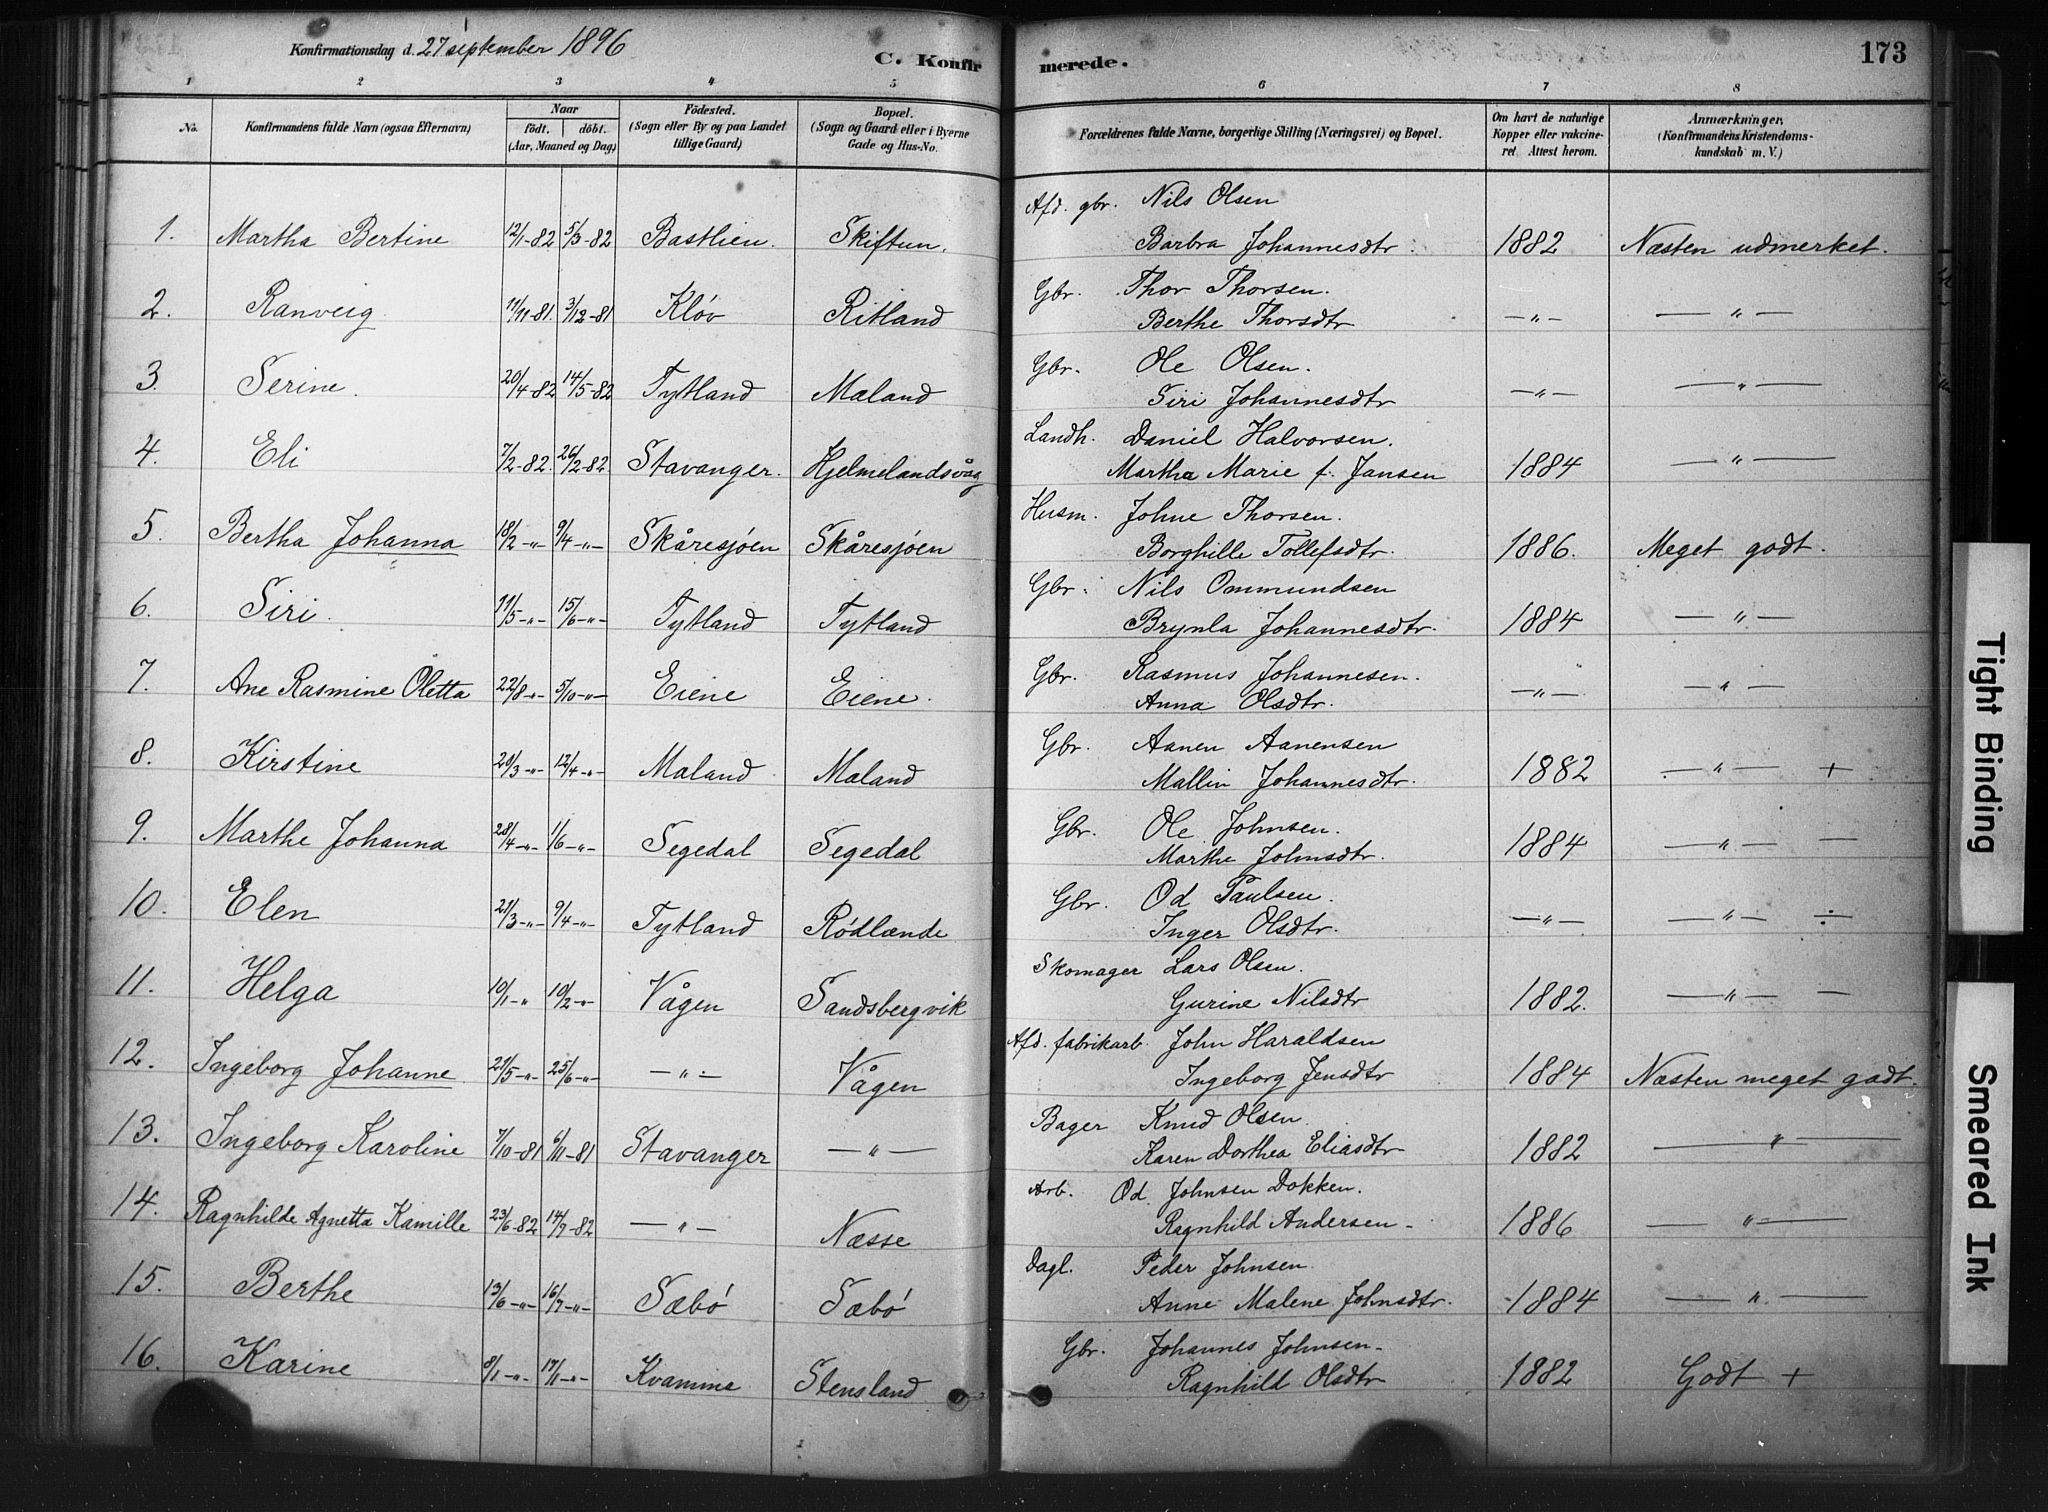 Konfirmationsdag d. 27 september 1896
C. Konfirmerede.
173
1 2 3 4 5 6 7 8
No.
Konfirmandens fulde Navn (ogsaa Efternavn)
Naar
födt. döbt.
(Aar, Maaned og Dag)
Födested.
(Sogn eller By og paa Landet
tillige Gaard)
Bopæl.
(Sogn og Gaard eller i Byerne
Gade og Hus-No.
Forældrenes fulde Navne, borgerlige Stilling (Næringsvei) og Bopæl.
Om havt de naturlige
Kopper eller vakcine-
ret Attest herom.
Anmærkninger,
(Konfirmandens Kristendoms-
kundskab m. V.)
Afd. gbr. Nils Olsen
1. Martha Bertine 12/1-82 5/3-82 Basthien. Skiftun. Barbra Johannesdtr. 1882 Næsten udmerket.
Gbr. Thor Thorsen.
2. Ranveig 11/11-81 3/12-81 Kløv Ritland Berthe Thorsdtr —"— —"—
Gbr. Ole Olsen.
3. Serine. 20/4-82 14/5-82 Tytland Mæland Siri Johannesdtr —"— —"—
Landh. Daniel Halvorsen.
4. Eli 7/2-82. 26/2-82 Stavanger. Hjelmelandsvåg Martha Marie f. Jansen 1884 —"—
Husm. Johne Thorsen.
5. Bertha Johanna 18/2-"- 9/4-"- Skåresjøen Skåresjøen Borghille Tollefsdtr. 1886. Meget godt.
Gbr. Nils Ommundsen
6. Siri. 11/5-"- 15/6-"- Tytland Tytland Brynla Johannesdtr. 1884 —"—
Gbr. Rasmus Johannesen.
7. Ane Rasmine Oletta 22/8-"- 5/10-"- Eiene Eiene. Anna Olsdtr. —"— —"—
Gbr. Aanen Aanensen
8. Kirstine 20/3-"- 12/4-"- Mæland Mæland Mallin Johannesdtr. 1882 —"— +
Gbr. Ole Johnsen.
9. Marthe Johanna 28/4-"- 1/6-"- Segedal Segedal Marthe Johnsdtr. 1884 —"— —
Gbr. Od Paulsen.
10. Elen 21/3-"- 9/4-"- Tytland Rødlænde Inger Olsdtr. —"— —"— ÷
Skomager Lars Olsen.
11. Helga 10/1-" 10/2-"- Vågen Sandsbergvik Gurine Nilsdtr 1882. —"— —
Afd. fabrikarb. John Haraldsen
12. Ingeborg Johanne 21/5-"- 25/6-"- —"— Vågen Ingeborg Jensdtr 1884 Næsten meget godt.
Bager Knud Olsen
13. Ingeborg Karoline 7/10-81 6/11-81 Stavanger —"— Karen Dorthea Eliasdtr 1882 —"—
Arb. Od Johnsen Dokken.
14. Ragnhilde Agnetta Kamille 23/6-82 14/7-82 —"— Næsse Ragnhild Andersen- 1886 —"—
Dagl. Peder Johnsen.
15. Berthe 13/6-"- 16/7-"- Sæbö Sæbö Anne Malene Johnsdtr. 1884 —"—
Gbr. Johannes Johnsen-
16. Karine 8/1-"- 17/1-"- Kvamme Stensland Ragnhild Olsdtr 1882 Godt +
Tight Binding
Smeared Ink